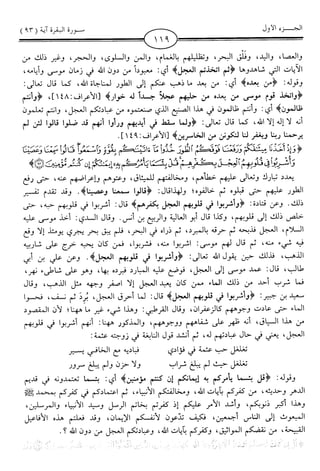 الجـــزء الأول
١١٩
سـورة البقرة آية (٩٣)
والعصا، واليد، وفلْق البحر، وتظليلهم بالغمام، والمن والسلوى، والحجر، وغير ذلك من
الآيات التي شاهدوها ﴿ثم اتخذتم العجل﴾ أي: معبوداً من دون الله في زمان موسى وأيامه،
وقوله: ﴿من بعده﴾ أي: من بعد ما ذهب عنكم إلى الطور لمناجاة الله، كما قال تعالى:
﴿واتخذ قوم موسى من بعده من حليهم عجلاً جسداً له خوار﴾ [الأعراف:١٤٨]، ﴿وأنتم
ظالمون﴾ أي: وأنتم ظالمون في هذا الصنيع الذي صنعتموه من عبادتكم العجل، وأنتم تعلمون
أنه لا إله إلا الله، كما قال تعالى: ﴿ولما سقط في أيديهم ورأوا أنهم قد ضلوا قالوا لئن لم
يرحمنا ربنا ويغفر لنا لنكونن من الخاسرين﴾ [الأعراف:١٤٩].
﴿وَإِذْ أَخَذْنَا مِيثَاقَكُمْ وَرَفَعْنَا فَوْقَكُمُ الطُّورَ خُذُوا مَا آتَيْنَاكُم بِقُوَّةٍ وَاسْمَعُوا قَالُوا سَمِعْنَا وَعَصَيْنَا
وَأُشْرِبُوا فِي قُلُوبِهِمُ الْعِجْلَ بِكُفْرِهِمْ قُلْ بِئْسَمَا يَأْمُرُكُم بِهِ إِيمَانُكُمْ إِن كُنتُم مُّؤْمِنِينَ﴾
يعدد تبارك وتعالى عليهم خطأهم، ومخالفتهم للميثاق، وعتوهم وإعراضهم عنه، حتى رفع
الطور عليهم حتى قبلوه ثم خالفوه؛ ولهذا قال: ﴿قالوا سمعنا وعصينا﴾. وقد تقدم تفسير
ذلك. وعن قتادة: ﴿وأشربوا في قلوبهم العجل بكفرهم﴾ قال: أشربوا في قلوبهم حبه، حتى
خلص ذلك إلى قلوبهم، وكذا قال أبو العالية والربيع بن أنس. وقال السدي: أخذ موسى عليه
السلام، العجل فذبحه ثم حرقه بالمبرد، ثم ذراه في البحر، فلم يبق بحر يجري يومئذ إلا وقع
فيه شيء منه، ثم قال لهم موسى: اشربوا منه، فشربوا، فمن كان يحبه خرج على شاربيه
الذهب، فذلك حين يقول الله تعالى: ﴿وأشربوا في قلوبهم العجل﴾. وعن علي بن أبي
طالب، قال: عمد موسى إلى العجل، فوضع عليه المبارد فبرده بها، وهو على شاطىء نهر،
فما شرب أحد من ذلك الماء ممن كان يعبد العجل إلا اصفر وجهه مثل الذهب، وقال
سعيد بن جبير: ﴿وأشربوا في قلوبهم العجل﴾ قال: لما أحرق العجل، بُرِد ثم نسف، فحسوا
الماء حتى عادت وجوههم كالزعفران، وقال القرطبي: وهذا شيء غير ما ههنا؛ لأن المقصود
من هذا السياق، أنه ظهر على شفاههم ووجوههم، والمذكور ههنا: أنهم أشربوا في قلوبهم
العجل، يعني في حال عبادتهم له، ثم أنشد قول النابغة في زوجته عثمة:
تغلغل حب عثمة في فؤادي فباديه مع الخافي يسير
تغلغل حيث لم يبلغ شراب ولا حزن ولم يبلغ سرور
وقوله: ﴿قل بئسما يأمركم به إيمانكم إن كنتم مؤمنين﴾ أي: بئسما تعتمدونه في قديم
الدهر وحديثه، من كفركم بآيات الله، ومخالفتكم الأنبياء، ثم اعتمادكم في كفركم بمحمد ﷺ
وهذا أكبر ذنوبكم، وأشد الأمر عليكم إذ كفرتم بخاتم الرسل وسيد الأنبياء والمرسلين،
المبعوث إلى الناس أجمعين، فكيف تدّعون لأنفسكم الإيمان، وقد فعلتم هذه الأفاعيل
القبيحة، من نقضكم المواثيق، وكفركم بآيات الله، وعبادتكم العجل من دون الله ؟.